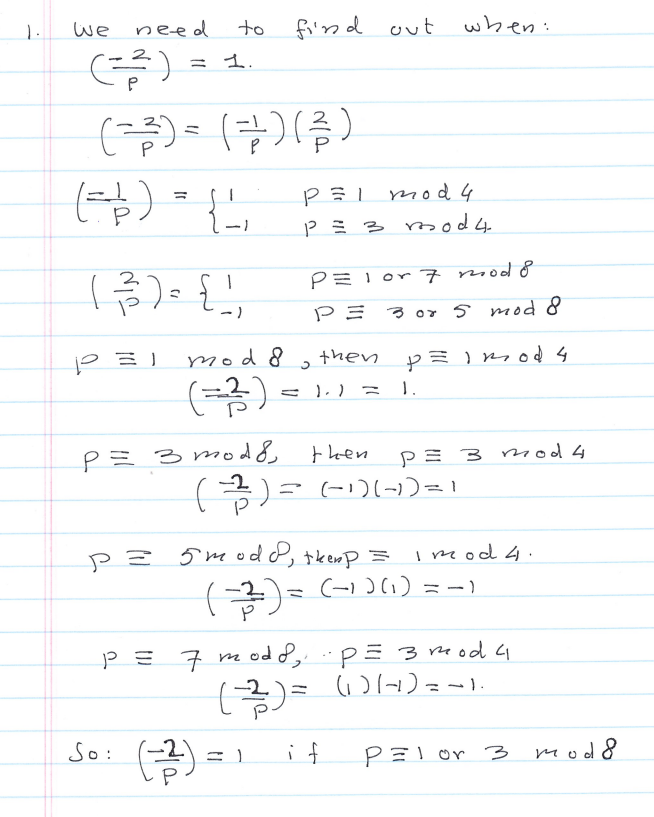 1. We need to find out when:
(-2/p) = 1.
(-2/p) = (-1/p)(2/p)
(-1/p) = { 1 p ≡ 1 mod 4
-1 p ≡ 3 mod 4
(2/p) = { 1 p ≡ 1 or 7 mod 8
-1 p ≡ 3 or 5 mod 8
p ≡ 1 mod 8, then p ≡ 1 mod 4
(-2/p) = 1.1 = 1.
p ≡ 3 mod 8, then p ≡ 3 mod 4
(-2/p) = (-1)(-1) = 1
p ≡ 5 mod 8, then p ≡ 1 mod 4.
(-2/p) = (-1)(1) = -1
p ≡ 7 mod 8, .. p ≡ 3 mod 4
(-2/p) = (1)(-1) = -1.
So: (-2/p) = 1 if p ≡ 1 or 3 mod 8